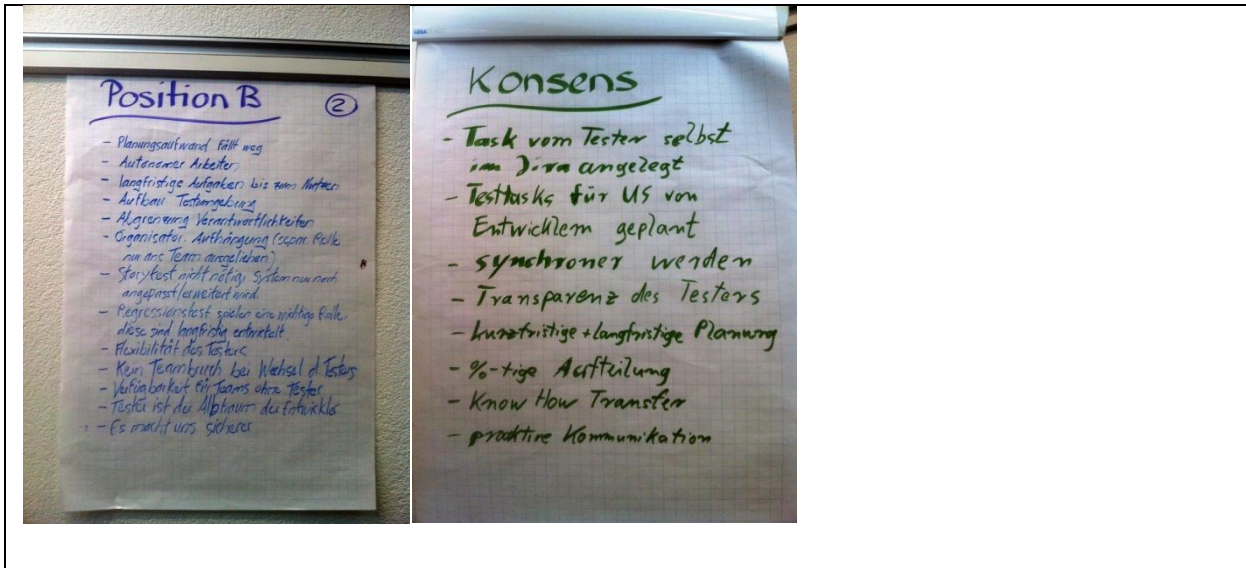 Position B
2
- Planungsaufwand fällt weg
- Autonomer Arbeiten
- langfristige Aufgaben bis zum Nutzen
- Aufbau Testumgebung
- Abgrenzung Verantwortlichkeiten
- Organisator. Aufhängung (separ. Rolle
nur ans Team ausgeliehen)
- Storytest nicht nötig, System nur noch
angepasst/erweitert wird.
- Regressionstest spielen eine wichtige Rolle,
diese sind langfristig entwickelt.
- Flexibilität des Testers
- Kein Teambruch bei Wechsel d. Testers
- Verfügbarkeit für Teams ohne Tester
- Tester ist der Albtraum der Entwickler
- Es macht uns sicherer
Konsens
- Task vom Tester selbst
im Jira angelegt
- Testtasks für US von
Entwicklern geplant
- synchroner werden
- Transparenz des Testers
- kurzfristige + langfristige Planung
- %-tige Aufteilung
- Know How Transfer
- proaktive Kommunikation